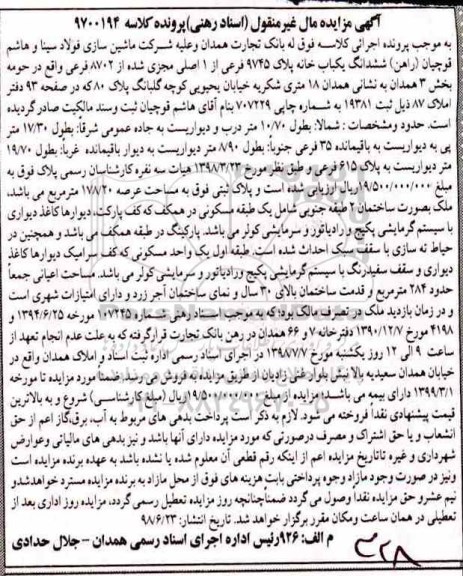 آگهی مزایده مال غیرمنقول (اسناد رهنی) پرونده کلاسه ۹۷۰۰۱۹۴
به موجب پرونده اجرائی کلاسه فوق له بانک تجارت همدان وعلیه شرکت ماشین سازی فولاد سینا و هاشم
قوچیان (راهن) ششدانگ یکباب خانه پلاک ۹۷۴۵ فرعی از ۱ اصلی مجزی شده از ۸۷۰۲ فرعی واقع در حومه
بخش ۳ همدان به نشانی همدان ۱۸ متری شکریه خیابان یحیویی کوچه گلبانگ پلاک ۸۰ که در صفحه ۹۳ دفتر
املاک ۸۷ ذیل ثبت ۱۹۳۸۱ به شماره چاپی ۷۰۷۲۲۹ بنام آقای هاشم قوچیان ثبت وسند مالکیت صادر گردیده
است. حدود ومشخصات: شمالا: بطول ۱۰/۷۰ متر درب و دیواریست به جاده عمومی شرقا: بطول ۱۷/۳۰ متر
پی به دیواریست به باقیمانده ۳۵ فرعی جنوبا: بطول ۸/۹۰ متر دیواریست به دیوار باقیمانده غربا: بطول ۱۹/۷۰
متر دیواریست به پلاک ۶۱۵ فرعی و طبق نظر مورخ ۱۳۹۸/۳/۲۲ هیات سه نفره کارشناسان رسمی پلاک فوق به
مبلغ ۱۹/۵۰۰/۰۰۰/۰۰۰ ریال ارزیابی شده است و پلاک ثبتی فوق به مساحت عرصه ۱۷۸/۲۰ مترمربع می باشد.
ملک بصورت ساختمان ۲ طبقه جنوبی شامل یک طبقه مسکونی در همکف که کف پارکت، دیوارها کاغذ دیواری
با سیستم گرمایشی پکیج و رادیاتور و سرمایشی کولر می باشد. پارکینگ در طبقه همکف می باشد و همچنین در
حیاط ته سازی با سقف سبک احداث شده است. طبقه اول یک واحد مسکونی که کف سرامیک دیوارها کاغذ
دیواری و سقف سفیدرنگ با سیستم گرمایشی پکیج ورادیاتور و سرمایشی کولر می باشد. مساحت اعیانی جمعاً
حدود ۲۸۴ مترمربع و قدمت ساختمان بالای ۳۰ سال و نمای ساختمان آجر زرد و دارای امتیازات شهری است
و در زمان بازدید ملک در تصرف مالک بود؛ که به موجب اسناد رهنی شماره ۱۰۷۲۴۵ مورخه ۱۳۹۴/۶/۲۵ و
۴۱۹۸ مورخ ۱۳۹۰/۱۲/۷ دفترخانه ۷ و ۶۶ همدان در رهن بانک تجارت قرار گرفته که به علت عدم انجام تعهد از
ساعت ۹ الی ۱۲ روز یکشنبه مورخ ۱۳۹۸/۷/۷ در اجرای اسناد رسمی اداره ثبت اسناد و املاک همدان واقع در
خیابان همدان سعیدیه بالا نبش بلوار غنی زادیان از طریق مزایده به فروش می رسد. ضمنا مورد مزایده تا مورخه
۱۳۹۹/۳/۱ دارای بیمه می باشند؛ مزایده از مبلغ ۱۹/۵۰۰/۰۰۰/۰۰۰ ریال (مبلغ کارشناسی) شروع و به بالاترین
قیمت پیشنهادی نقدا فروخته می شود. لازم به ذکر است پرداخت بدهی های مربوط به آب، برق،گاز اعم از حق
انشعاب و یا حق اشتراک و مصرف درصورتی که مورد مزایده دارای آنها باشد و نیز بدهی های مالیاتی وعوارض
شهرداری و غیره تاتاریخ مزایده اعم از اینکه رقم قطعی آن معلوم شده یا نشده باشد به عهده برنده مزایده است
ونیز در صورت وجود مازاد وجوه پرداختی بابت هزینه های فوق از محل مازاد به برنده مزایده مسترد خواهدشدو
نیم عشرو حق مزایده نقدا وصول می گردد ضمناچنانچه روز مزایده تعطیل رسمی گردد، مزایده روز اداری بعد از
تعطیلی در همان ساعت ومکان مقرر برگزار خواهد شد. تاریخ انتشار: ۹۸/۶/۲۳
م الف: ۹۲۶ رئیس اداره اجرای اسناد رسمی همدان - جلال حدادی